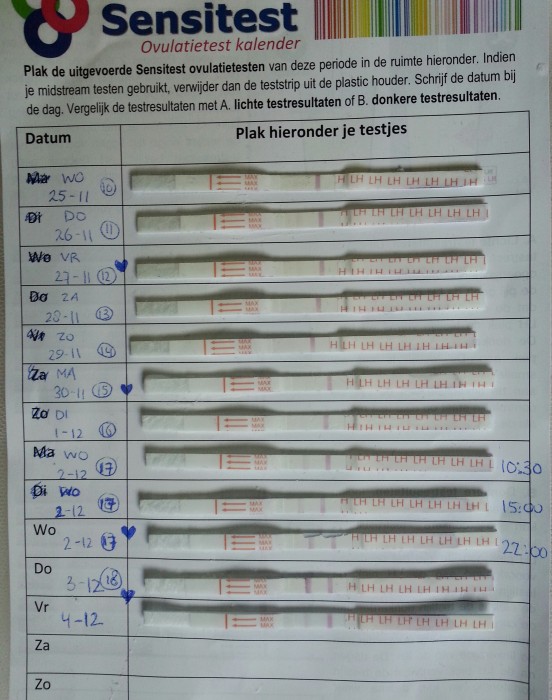 Sensitest
Ovulatietest kalender
Plak de uitgevoerde Sensitest ovulatietesten van deze periode in de ruimte hieronder. Indien
je midstream testen gebruikt, verwijder dan de teststrip uit de plastic houder. Schrijf de datum bij
de dag. Vergelijk de testresultaten met A. lichte testresultaten of B. donkere testresultaten.
Datum Plak hieronder je testjes
Ma WO MAX MAX MAX H LH LH LH LH LH LH LH
25-11 10
Di DO MAX MAX MAX LH LH LH LH LH LH
26-11 11
Wo VR MAX MAX MAX LH LH LH LH LH LH
27-11 12
Do ZA MAX MAX MAX LH LH LH LH LH LH
28-11 13
Vr ZO MAX MAX MAX H LH LH LH LH LH LH LH
29-11 14
Za MA MAX MAX MAX H LH LH LH LH LH LH LH
30-11 15
Zo DI MAX MAX MAX LH LH LH LH LH
1-12 16
Ma WO MAX MAX MAX LH LH LH LH LH LH 10:30
2-12 17
Di WO MAX MAX MAX H LH LH LH LH LH LH 15:00
2-12 17
Wo MAX MAX MAX H LH LH LH LH LH LH LH
2-12 17 22:00
Do MAX MAX MAX H LH LH LH LH LH LH
3-12 18
Vr MAX MAX MAX LH LH LH LH LH LH LH
4-12
Za
Zo